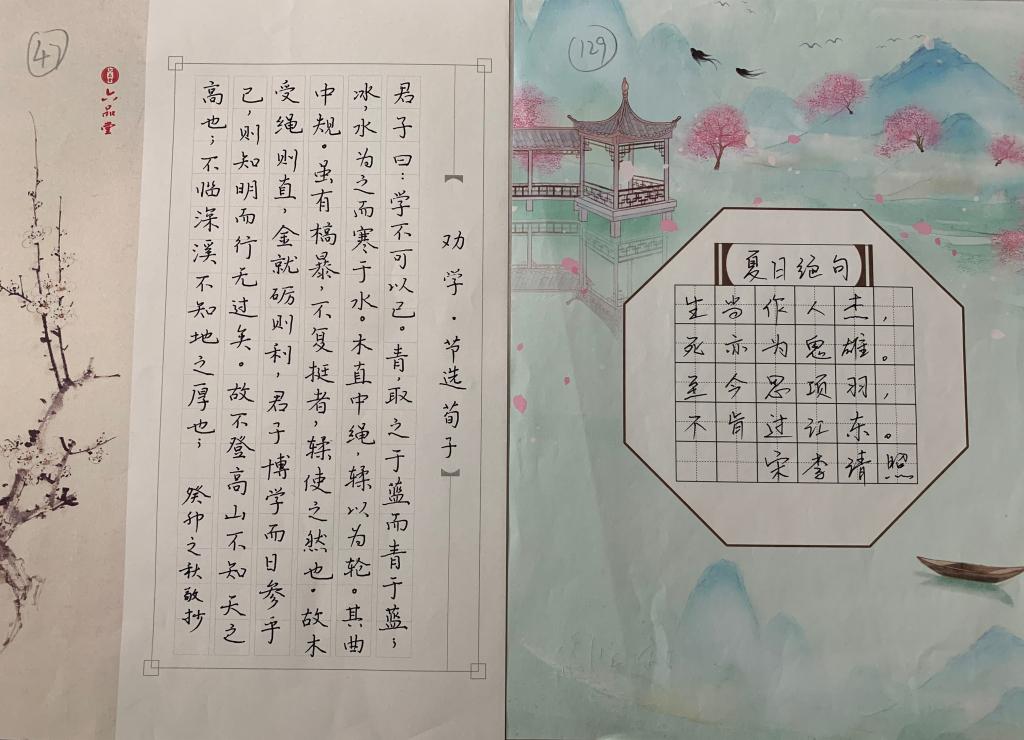 41
六品堂
【劝学·节选荀子】
君子曰：学不可以已。青，取之于蓝而青于蓝；
冰，水为之而寒于水。木直中绳，輮以为轮。其曲
中规。虽有槁暴，不复挺者，輮使之然也。故木
受绳则直，金就砺则利，君子博学而日参乎
己，则知明而行无过矣。故不登高山不知天之
高也；不临深溪不知地之厚也；
癸卯之秋敬抄
129
【夏日绝句】
生当作人杰，
死亦为鬼雄。
至今思项羽，
不肯过江东。
宋李清照